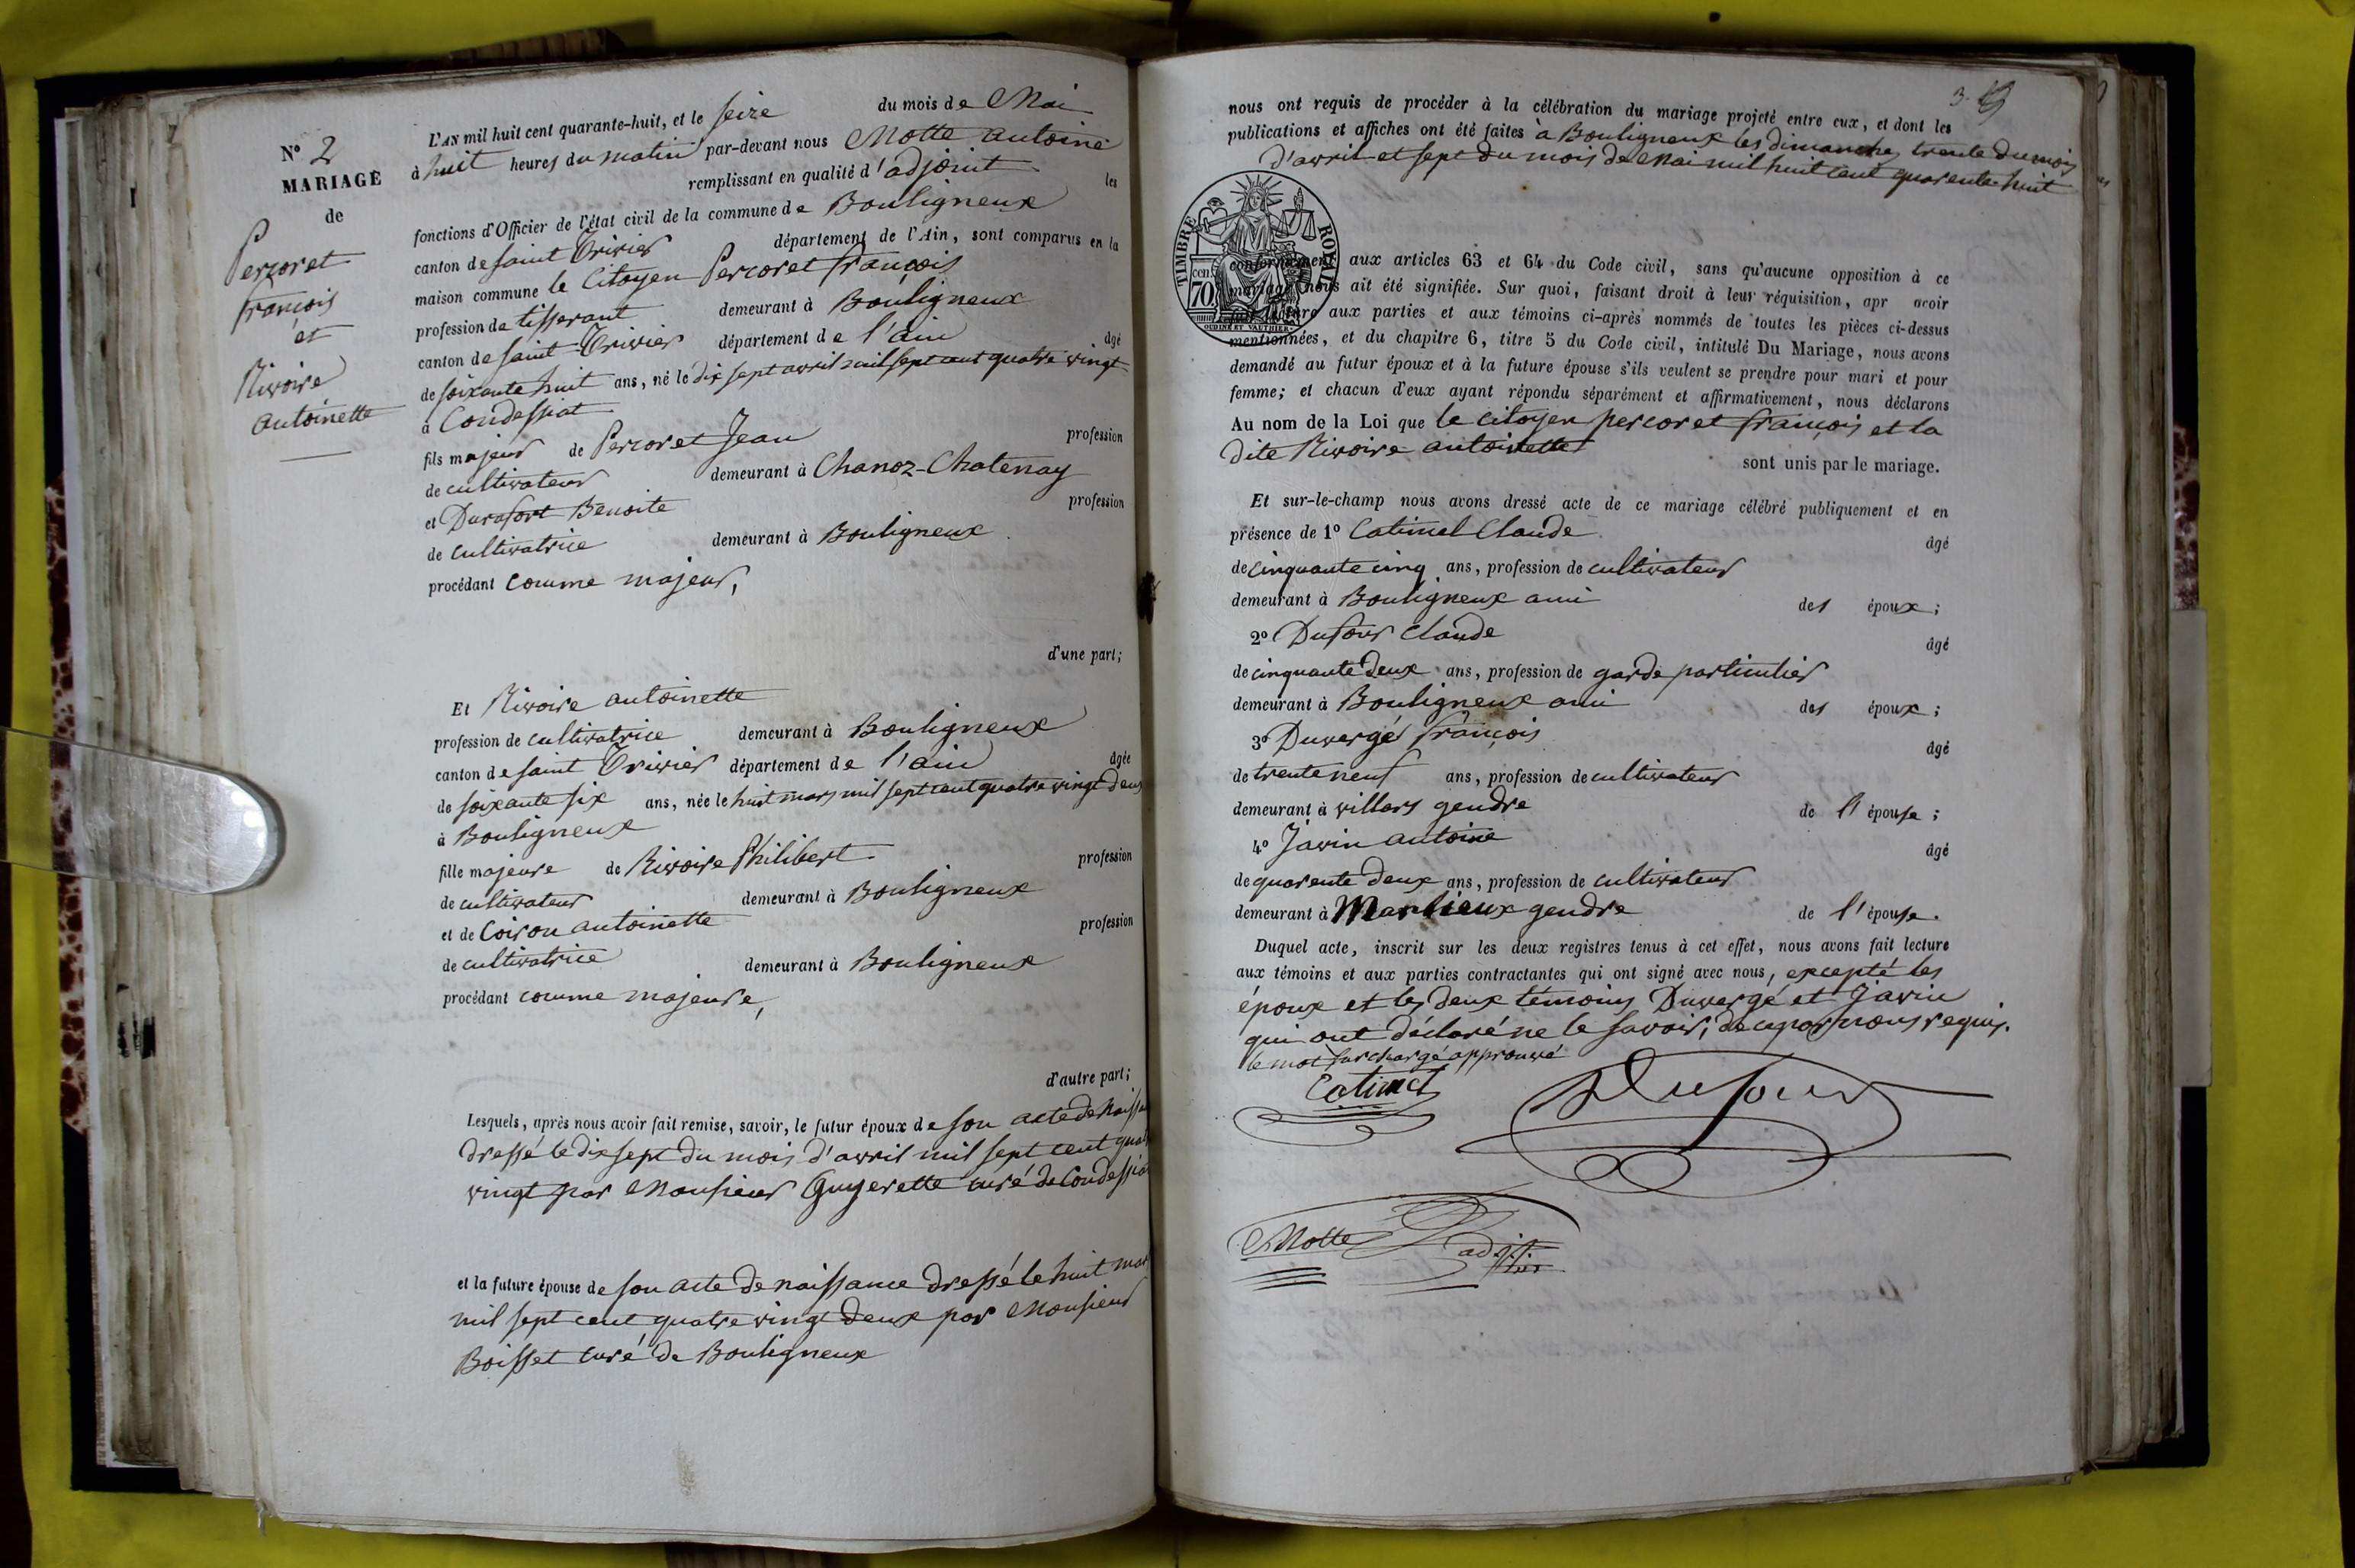 N° 2
MARIAGE
de
Percoret
françois
et
Rivoire
antoinette
L'AN mil huit cent quarante-huit, et le seize du mois de Mai
à huit heures du matin par-devant nous Motte antoine
remplissant en qualité d'adjoint les
fonctions d'Officier de l'état civil de la commune de Bouligneux
canton de saint Trivier département de l'Ain, sont comparus en la
maison commune le Citoyen Percoret françois
profession de tisserant demeurant à Bouligneux
canton de saint Trivier département de l'ain âgé
de soixante huit ans, né le dix sept avril mil sept cent quatre vingt
à Condessiat
fils majeur de Percoret Jean profession
de cultivateur demeurant à Chanoz-Chatenay
et Durafort Benoite profession
de cultivatrice demeurant à Bouligneux
procédant comme majeur,
d'une part;
Et Rivoire antoinette
profession de cultivatrice demeurant à Bouligneux
canton de saint Trivier département de l'ain âgée
de soixante six ans, née le huit mars mil sept cent quatre vingt deux
à Bouligneux
fille majeure de Rivoire Philibert profession
de cultivateur demeurant à Bouligneux
et de Coiron antoinette profession
de cultivatrice demeurant à Bouligneux
procédant comme majeure,
d'autre part;
Lesquels, après nous avoir fait remise, savoir, le futur époux de son acte de naiss
dressé le dix sept du mois d'avril mil sept cent quat
vingt par Monsieur Guyerette curé de Condessia
et la future épouse de son acte de naissance dressé le huit mar
mil sept cent quatre vingt deux par Monsieur
Boisset curé de Bouligneux
3
nous ont requis de procéder à la célébration du mariage projeté entre eux, et dont les
publications et affiches ont été faites à Bouligneux les dimanches trente du mois
d'avril et sept du mois de Mai mil huit cent quarente huit
TIMBRE ROYAL
cen. 70
OUDINE ET VAUTHIER
conformément aux articles 63 et 64 du Code civil, sans qu'aucune opposition à ce
mariage nous ait été signifiée. Sur quoi, faisant droit à leur réquisition, apr avoir
fait lecture aux parties et aux témoins ci-après nommés de toutes les pièces ci-dessus
mentionnées, et du chapitre 6, titre 5 du Code civil, intitulé Du Mariage, nous avons
demandé au futur époux et à la future épouse s'ils veulent se prendre pour mari et pour
femme; et chacun d'eux ayant répondu séparément et affirmativement, nous déclarons
Au nom de la Loi que le citoyen percoret françois et la
dite Rivoire antoinette sont unis par le mariage.
Et sur-le-champ nous avons dressé acte de ce mariage célébré publiquement et en
présence de 1° Catimel Claude âgé
de cinquante cinq ans, profession de cultivateur
demeurant à Bouligneux ami des époux;
2° Dufour Claude âgé
de cinquante deux ans, profession de garde particulier
demeurant à Bouligneux ami des époux;
3° Duvergé françois âgé
de trente neuf ans, profession de cultivateur
demeurant à villars gendre de l'épouse;
4° Javin antoine âgé
de quarente deux ans, profession de cultivateur
demeurant à Marlieux gendre de l'épouse.
Duquel acte, inscrit sur les deux registres tenus à cet effet, nous avons fait lecture
aux témoins et aux parties contractantes qui ont signé avec nous, excepté les
époux et les deux témoins Duvergé et Javin
qui ont déclaré ne le savoir, de ce par nous requis.
le mot surchargé approuvé
Catimel
Dufour
Motte
adj.